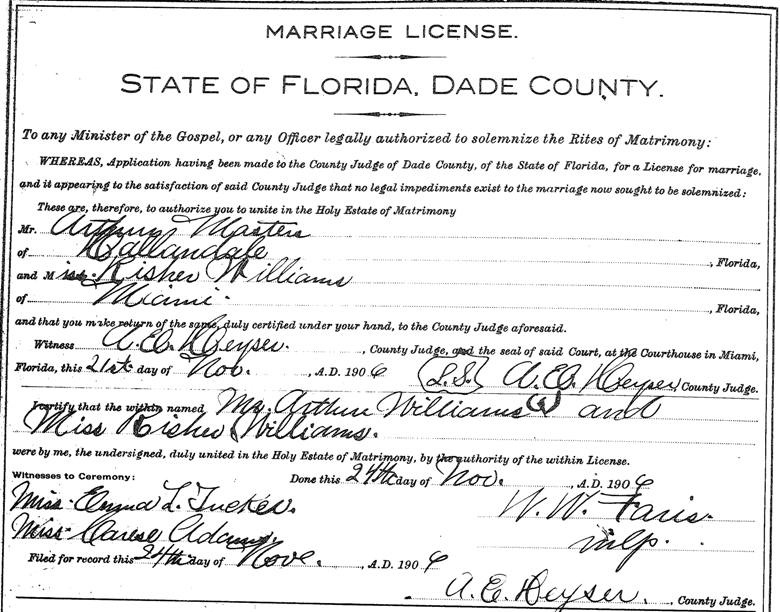 MARRIAGE LICENSE.
STATE OF FLORIDA, DADE COUNTY.
To any Minister of the Gospel, or any Officer legally authorized to solemnize the Rites of Matrimony:
WHEREAS, Application having been made to the County Judge of Dade County, of the State of Florida, for a License for marriage,
and it appearing to the satisfaction of said County Judge that no legal impediments exist to the marriage now sought to be solemnized:
These are, therefore, to authorize you to unite in the Holy Estate of Matrimony
Mr. Arthur Masters
of Hallandale, Florida,
and Miss. Kisher Williams
of Miami., Florida,
and that you make return of the same, duly certified under your hand, to the County Judge aforesaid.
Witness A. E. Heyser., County Judge, and the seal of said Court, at the Courthouse in Miami,
Florida, this 21st day of Nov., A.D. 1906 (L.S.) A. E. Heyser, County Judge.
I certify that the within named Mr. Arthur Williams and
Miss Kisher Williams.
were by me, the undersigned, duly united in the Holy Estate of Matrimony, by the authority of the within License.
Witnesses to Ceremony: Done this 24th day of Nov., A.D. 1906
Miss. Emma L. Tucker. W. W. Faris.
Miss. Adams.
Filed for record this 24th day of Nove., A.D. 1906
A. E. Heyser., County Judge.